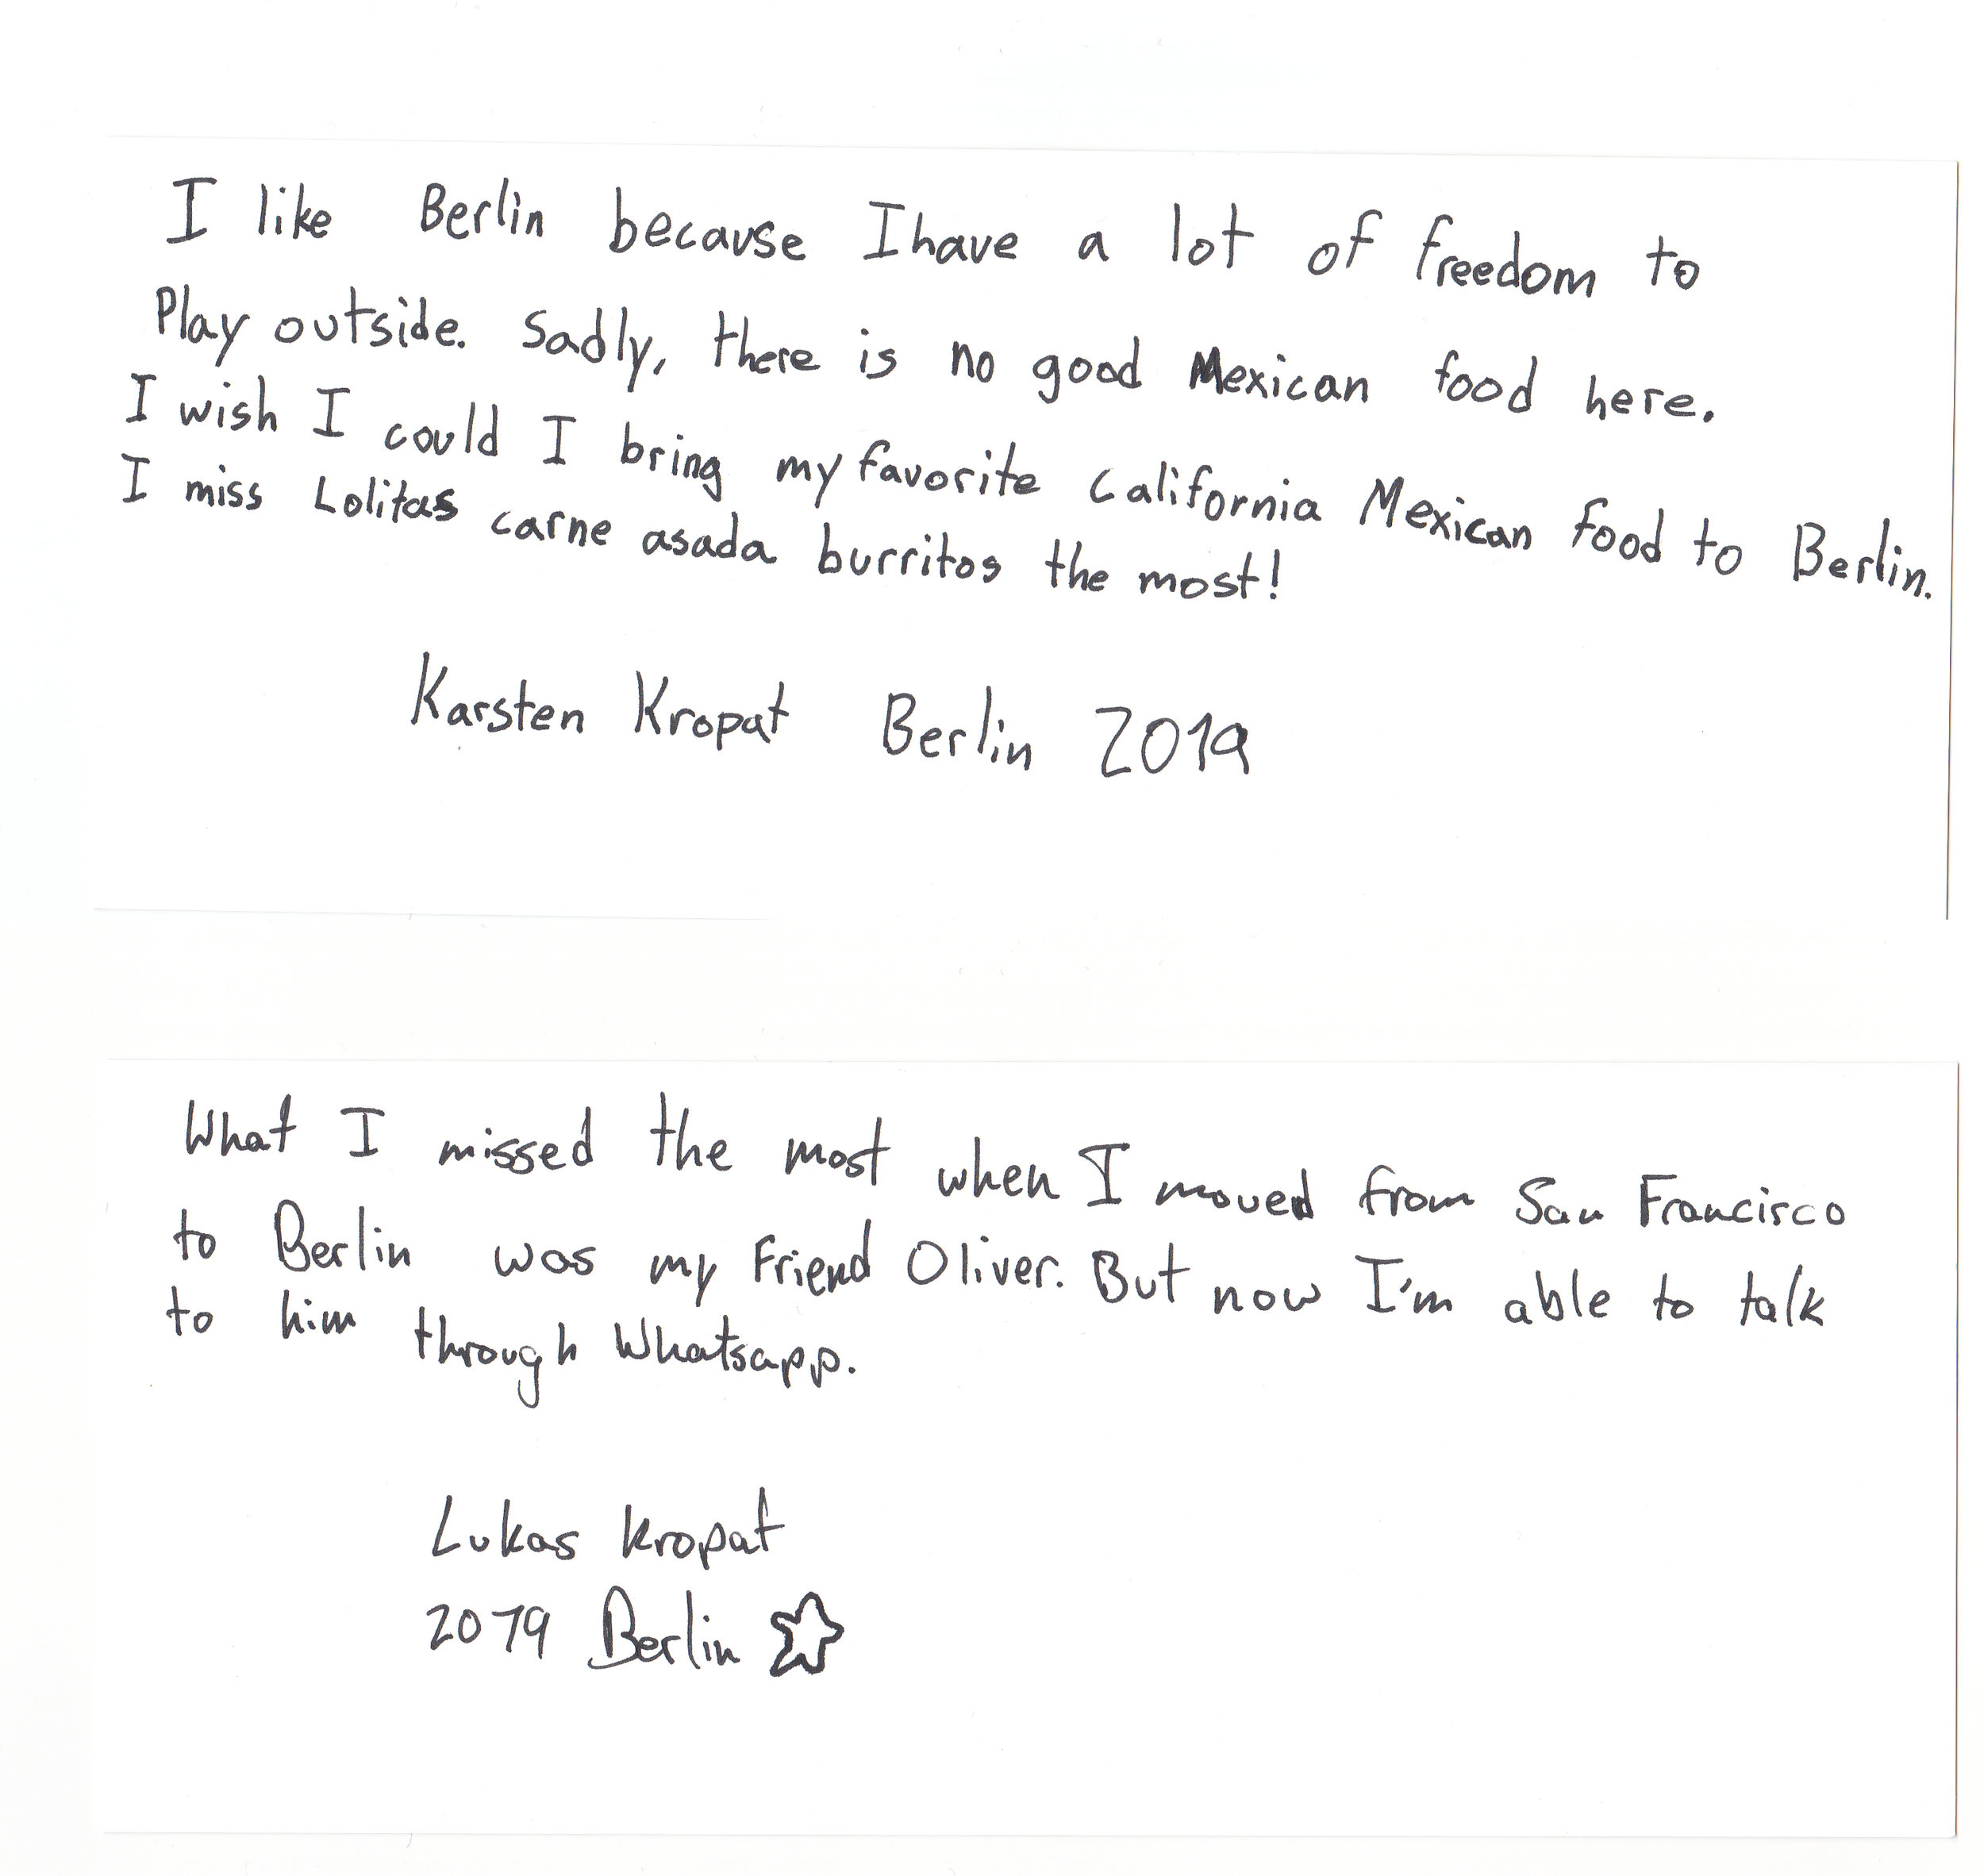 I like Berlin because I have a lot of freedom to
Play outside. Sadly, there is no good Mexican food here.
I wish I could I bring my favorite California Mexican food to Berlin.
I miss Lolitas carne asada burritos the most!
Karsten Kropat Berlin 2019
What I missed the most when I moved from San Francisco
to Berlin was my Friend Oliver. But now I'm able to talk
to him through Whatsapp.
Lukas Kropat
2019 Berlin